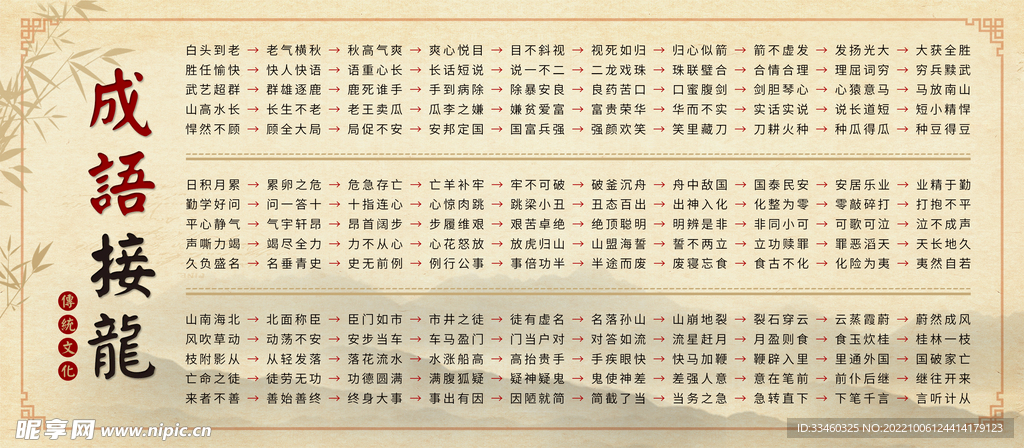 成語接龍
傳統文化
白头到老 → 老气横秋 → 秋高气爽 → 爽心悦目 → 目不斜视 → 视死如归 → 归心似箭 → 箭不虚发 → 发扬光大 → 大获全胜
胜任愉快 → 快人快语 → 语重心长 → 长话短说 → 说一不二 → 二龙戏珠 → 珠联璧合 → 合情合理 → 理屈词穷 → 穷兵黩武
武艺超群 → 群雄逐鹿 → 鹿死谁手 → 手到病除 → 除暴安良 → 良药苦口 → 口蜜腹剑 → 剑胆琴心 → 心猿意马 → 马放南山
山高水长 → 长生不老 → 老王卖瓜 → 瓜李之嫌 → 嫌贫爱富 → 富贵荣华 → 华而不实 → 实话实说 → 说长道短 → 短小精悍
悍然不顾 → 顾全大局 → 局促不安 → 安邦定国 → 国富兵强 → 强颜欢笑 → 笑里藏刀 → 刀耕火种 → 种瓜得瓜 → 种豆得豆
日积月累 → 累卵之危 → 危急存亡 → 亡羊补牢 → 牢不可破 → 破釜沉舟 → 舟中敌国 → 国泰民安 → 安居乐业 → 业精于勤
勤学好问 → 问一答十 → 十指连心 → 心惊肉跳 → 跳梁小丑 → 丑态百出 → 出神入化 → 化整为零 → 零敲碎打 → 打抱不平
平心静气 → 气宇轩昂 → 昂首阔步 → 步履维艰 → 艰苦卓绝 → 绝顶聪明 → 明辨是非 → 非同小可 → 可歌可泣 → 泣不成声
声嘶力竭 → 竭尽全力 → 力不从心 → 心花怒放 → 放虎归山 → 山盟海誓 → 誓不两立 → 立功赎罪 → 罪恶滔天 → 天长地久
久负盛名 → 名垂青史 → 史无前例 → 例行公事 → 事倍功半 → 半途而废 → 废寝忘食 → 食古不化 → 化险为夷 → 夷然自若
山南海北 → 北面称臣 → 臣门如市 → 市井之徒 → 徒有虚名 → 名落孙山 → 山崩地裂 → 裂石穿云 → 云蒸霞蔚 → 蔚然成风
风吹草动 → 动荡不安 → 安步当车 → 车马盈门 → 门当户对 → 对答如流 → 流星赶月 → 月盈则食 → 食玉炊桂 → 桂林一枝
枝附影从 → 从轻发落 → 落花流水 → 水涨船高 → 高抬贵手 → 手疾眼快 → 快马加鞭 → 鞭辟入里 → 里通外国 → 国破家亡
亡命之徒 → 徒劳无功 → 功德圆满 → 满腹狐疑 → 疑神疑鬼 → 鬼使神差 → 差强人意 → 意在笔前 → 前仆后继 → 继往开来
来者不善 → 善始善终 → 终身大事 → 事出有因 → 因陋就简 → 简截了当 → 当务之急 → 急转直下 → 下笔千言 → 言听计从
昵享网 www.nipic.cn
ID:33460325 NO:20221006124414179123